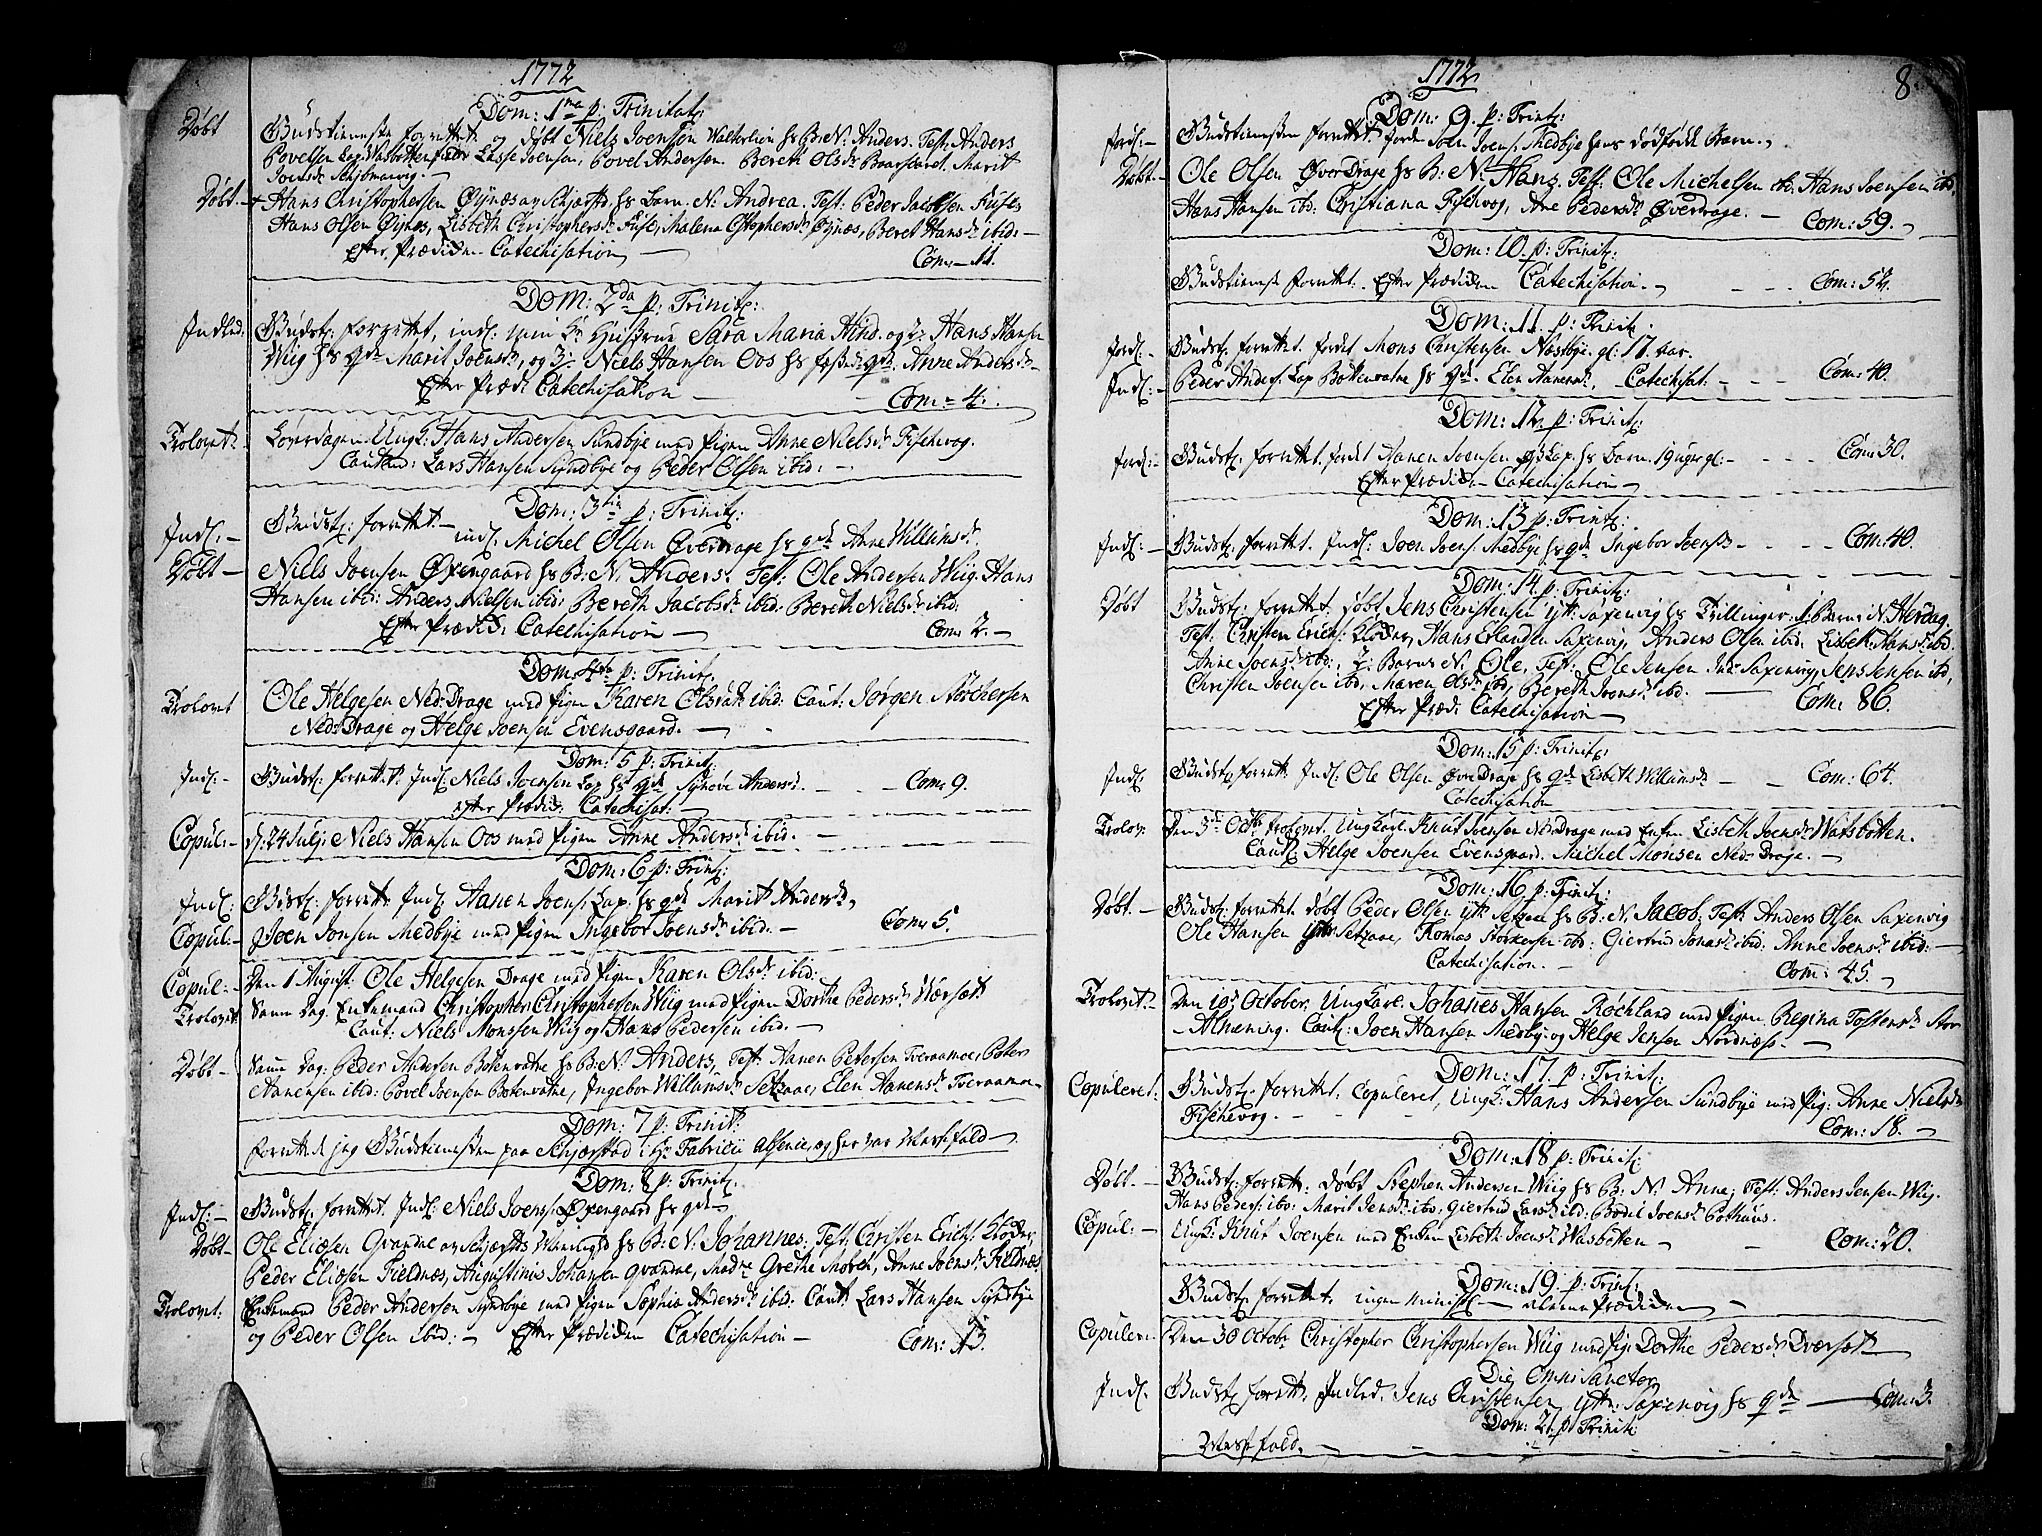 1772
Dom: 1na p: Trinitat:
Døbt Gudstienesten forrettet og døbt Niels Joensen hs B: N: Anders. Test: Anders
Povelsen Lasse Joensen, Povel Andersen. Bereth Olsdr Marit
Joensdr
Døbt. Hans Christophersen Øynæs hs barn. N: Andrea. Test: Peder Jacobsen Fuse,
Hans Olsen Øynes, Lisbeth Christophersdr Fuse, Malena Øynæs, Beret Hansdr ibid: —
Efter Prædiken Catechisation — Com: 11.
Dom: 2da p: Trinit:
Indled. Gudst: forrettet, indl: min Hustrue Sara Maria Hind. og Hans Hansen
Wiig hs qde Marit Joensdr, og 3. Niels Hansen Oos hs qde. Anne Andersdr
Efter Præd: Catechisation — Com: 4.
Trolovet Løverdagen Ungk: Hans Andersen Sundbye med Pigen Anne Nielsdr Fischvog.
Caut: Lars Hansen Syndbye og Peder Olsen ibid: —
Dom: 3tia p: Trinit:
Indl: — Gudst: forrettet. — indl: Michel Olsen Øverdrage hs qde Anne Willumsdr.
Døbt — Niels Joensen Øxengaard hs B: N: Anders. Test: Ole Andersen Wiig. Hans
Hansen ibid: Anders Nielsen ibid: Bereth Jacobsdr ibid: Bereth Nielsdr ibid:
Efter Præd: Catechisation — Com: 2. —
Dom: 4ta p: Trinit:
Trolovet Ole Helgesen Ned: Drage med Pigen Karen Olsdr ibid: Caut: Jørgen Störchersen
Ned: Drage og Helge Joensen Evensgaard. —
Dom: 5 p: Trinit:
Indl: — Gudst: forrettet. Indl: Niels Joensen Lap hs qde Synøve Andersdr. — Com: 9.
efter Prædik: Catechisat: —
Copul: — d: 24 Julj Niels Hansen Oos med Pigen Anne Andersdr ibid. —
Dom: 6 p: Trinit:
Indl: Gudst: forrett: Indl: Aanen Joens: Lap. hs qde Marit Andersdr,
Copul: — Joen Jonsen Medbye med Pigen Ingebor Joensdr ibid. — Com: 5.
Copul: — Den 1 August. Ole Helgesen Drage med Pigen Karen Olsdr ibid:
Trolovet Samme Dag Enkemand Christopher Christophersen Wiig med Pigen Dorthe Pedersdr
Caut: Niels Monssen Wiig og Hans Pedersen ibid. —
Døbt — Samme Dag: Peder Andersen Botenvatne hs B: N: Anders, Test: Aanen Petersen Tveraamoe, Peter
Aanensen ibid: Povel Joensen Botenvatne, Ingebor Willumsdr Setzaae, Elen Aanensdr Tveraamo —
Dom: 7 p: Trinit:
forrettede jeg Gudstienesten paa Schjærstad i Hr Fabricii absence, og her var Messefald —
Dom: 8 p: Trinit:
Indl: — Gudst: forrettet. Indl: Niels Joens: Øxengaard hs qde
Døbt — Ole Eliæsen Qvandal hs B: N: Johannes. Test: Christen Erichs: Kloder,
Peder Eliæsen Fieldnæs, Augustinus Johansen Qvandal, Madme Grethe Anne Joensdr Fieldnæs
Trolovet: Enkemand Peder Andersen Syndbye med Pigen Sophia Andersdr ibid: Caut: Lars Hansen Syndbye
og Peder Olsen ibid: — Efter Prædiken Catechisation — Com: 13.
1772 8.
Dom: 9. p: Trinit:
Jord: — Gudstienesten forrettet. Joen Joens: Medbye hans dødfødde Barn.
Døbt. — Ole Olsen Øverdrage hs B: N: Hans. Test: Ole Michelsen ibd, Hans Joensen ibd,
Hans Hansen ibd: Christiana Fischvog, Ane Pedersdr Øverdrage. — Com: 59.
Dom: 10. p: Trinit:
Gudstienest forrettet. Efter Prædiken Catechisation. — Com: 52.
Dom: 11. p: Trinit:
Jord: — Gudst: forrettet. Mons Christensen Næstbye. gl: 17. aar.
Indl: — Peder Anders: Lap Bottenvatne hs qde. Elen Aanensdr. — Catechisat: — Com: 40.
Dom: 12. p: Trinit:
Jord: — Gudst: forrettet. Aanen Joensen Lap. hs Barn. 19 uger gl: — Com: 30.
Efter Prædiken Catechisation —
Dom: 13 p: Trinit:
Indl: — Gudst: forrettet. Indl: Joen Joens: Medbye hs qde Ingebor Joensdr — Com: 40.
Dom: 14. p: Trinit:
Døbt Gudst: forrettet: døbt Jens Christensen Ytt: Saxenvig hs Trillinger. 1. Barn: N: Herdag.
Test: Christen Erichs: Kloder, Hans Erlandsen Saxenvig, Anders Olsen ibid: Lisbeth Hansdr ibd.
Anne Joensdr ibid:, 2: Barns N: Ole, Test: Ole Jensen Saxenvig, Jens Jensen ibd,
Christen Joensen ibd, Maren Olsdr ibd, Bereth Joensdr ibd. — Com: 86.
Efter Præd: Catechisation —
Dom: 15 p: Trinit:
Indl: Gudst: forrett: Indl: Ole Olsen Øverdrage hs qde Lisbeth Willumsdr — Com: 64.
Catechisation
Trolov: Den 3de Octbr trolovet. Ungkarl Knut Joensen Ned: Drage med Enken Lisbeth Joensdr Watsbotten.
Caut: Helge Joensen Evensgaard. Michel Monsen Ned: Drage. —
Dom: 16 p: Trinit:
Døbt. — Gudst: forrettet. døbt Peder Olsen Ytt: Setzaae hs B: N: Jacob. Test: Anders Olsen Saxenvig
Ole Hansen Ytt: Setzaae, Tomas Storkersen ibd: Giertrud Jonasdr ibid: Anne Joensdr ibid: —
Catechisation. — Com: 45. —
Trolovet. — Den 10de October. Ungkarl. Johanes Hansen Røchland med Pigen Regina Tostensdr Stor
Almening. Caut: Joen Hansen Medby: og Helge Jensen Nordnæss. —
Dom: 17. p: Trinit:
Copuleret: Gudst: forrettet. Copuleret, Ungk: Hans Andersen Sundbye med Pig: Anne Nielsdr
Fischevog. — Com: 18. —
Dom: 18 p: Trinit:
Døbt. — Gudst: forrett: døbt Stephen Andersen Wiig hs B: N: Anne; Test: Anders Jensen Wiig.
Hans Peders: ibd: Marit Jensdr ibd: Giertrud Larsdr ibd: Bodil Joensdr Pothuus.
Copul: — Ungk: Knut Joensen med Enken Lisbeth Joensdr Wasbotten — Com: 20.
Dom: 19. p: Trinit:
Gudst: forrettet. ingen — Prædiken —
Copuler: Den 30 Octobr Christopher Christophersen Wiig med Pig: Dorthe Pedersdr
Die Omni Sanctor
Indl. Gudst: forrett: Indled. Jens Christensen Ytt: Saxenvig hs qde — Com: 3.
Dom: 21. p: Trinit:
Messefald. —